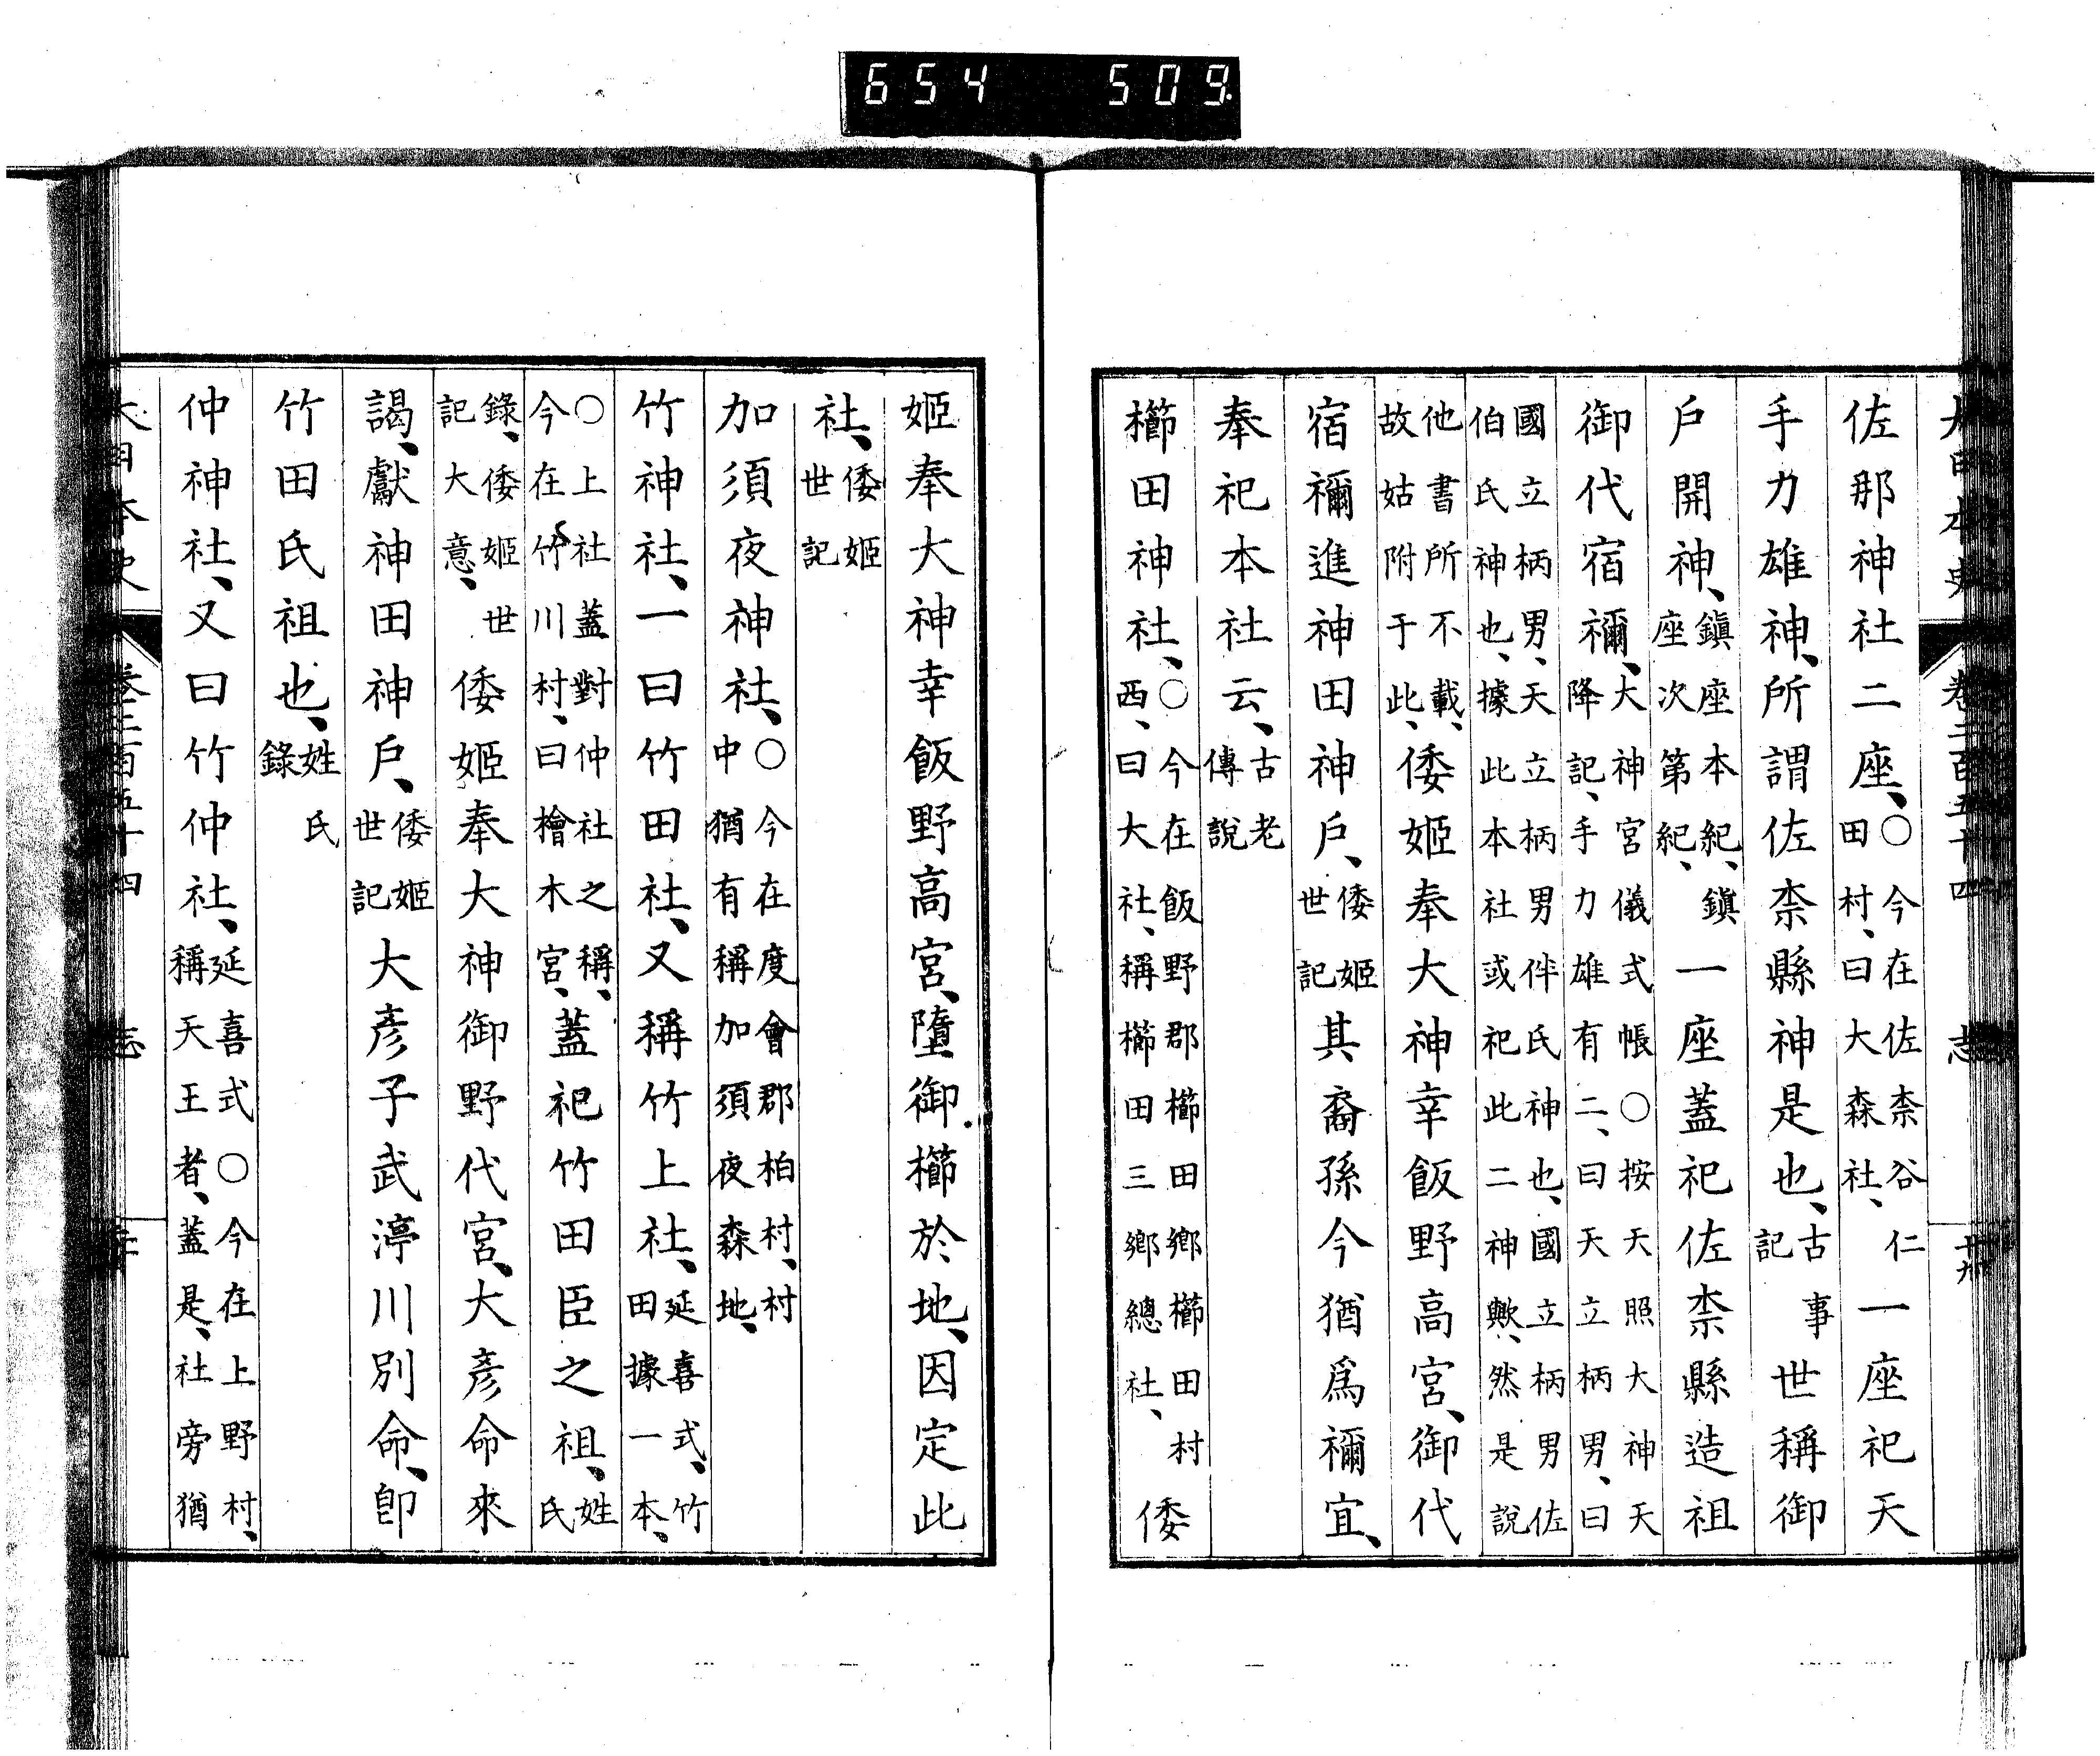 654 509
大日本史 卷二百五十四 志 十九
佐那神社二座、○今在佐柰谷仁田村、曰大森社、一座祀天
手力雄神、所謂佐柰縣神是也、古事記世稱御
戶開神、鎭座本紀、鎭座次第紀、一座蓋祀佐柰縣造祖
御代宿禰、大神宮儀式帳○按天照大神天降記、手力雄有二、曰天立柄男、曰
國立柄男、天立柄男伴氏神也、國立柄男佐伯氏神也、據此本社或祀此二神歟、然是說
他書所不載、故姑附于此、倭姬奉大神幸飯野高宮、御代
宿禰進神田神戶、倭姬世記其裔孫今猶爲禰宜、
奉祀本社云、古老傳說
櫛田神社、○今在飯野郡櫛田鄉櫛田村西、曰大社、稱櫛田三鄉總社、倭
姬奉大神幸飯野高宮、墮御櫛於地、因定此
社、倭姬世記
加須夜神社、○今在度會郡柏村、村中猶有稱加須夜森地、
竹神社、一曰竹田社、又稱竹上社、延喜式、竹田據一本、
○上社蓋對仲社之稱、今在竹川村、曰檜木宮、蓋祀竹田臣之祖、姓氏
錄、倭姬世記大意、倭姬奉大神御野代宮、大彥命來
謁、獻神田神戶、倭姬世記大彥子武渟川別命、卽
竹田氏祖也、姓氏錄
仲神社、又曰竹仲社、延喜式○今在上野村、稱天王者、蓋是、社旁猶
大日本史 卷二百五十四 志 二十